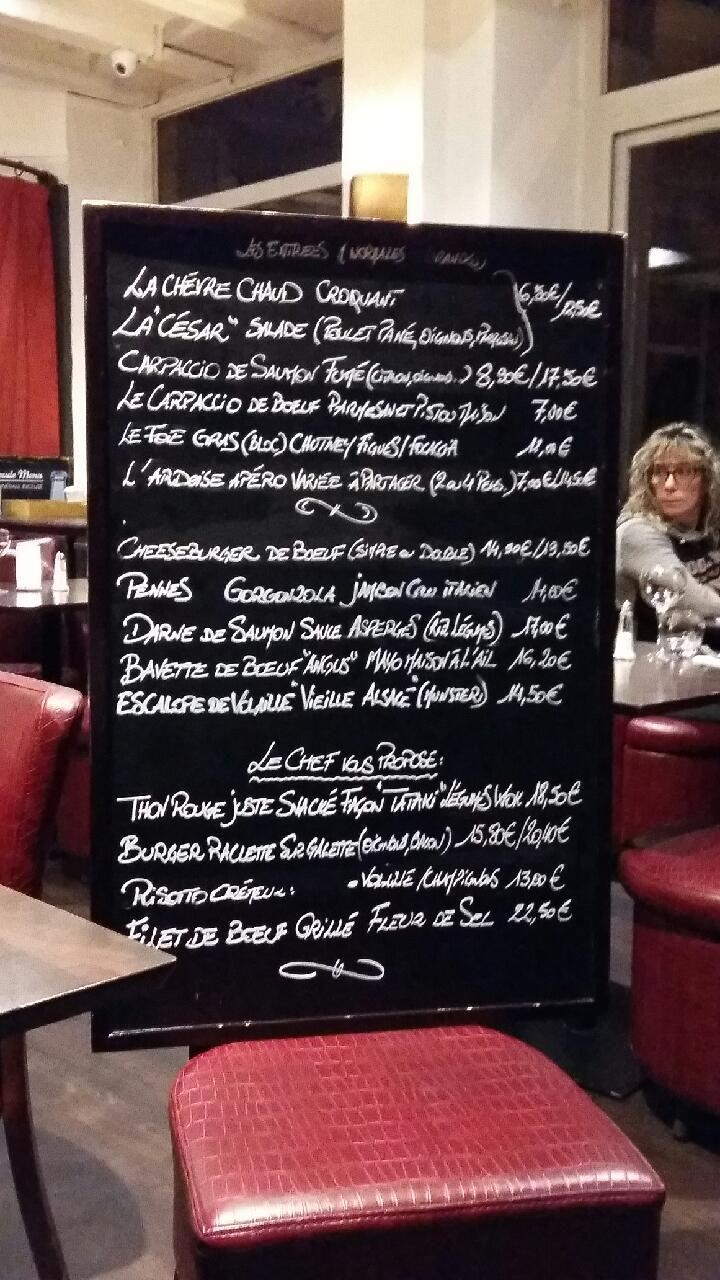 Les Entrées (Normales
La Chèvre Chaud Croquant
La "César" Salade (Poulet Pané, Oignons, Parmesan)
Carpaccio de Saumon Fumé (Citron, Oignons..) 8,90€/17,50€
Le Carpaccio de Boeuf Parmesan et Pistou Maison 7,00€
Le Foie Gras (Bloc) Chutney Figues/Focaccia
L'Ardoise Apéro Variée à Partager (2 ou 4 Pers.) 7,00€/14,50€
Cheeseburger de Boeuf (Simple ou Double) 14,90€/19,50€
Pennes Gorgonzola Jambon Cru Italien
Darne de Saumon Sauce Asperges (Riz Légumes) 17,00€
Bavette de Boeuf "Angus" Mayo Maison à l'Ail 16,20€
Escalope de Volaille "Vieille Alsace" (Munster) 14,50€
Le Chef vous Propose:
Thon Rouge juste Snacké Façon "Tataki" Légumes Wok 18,50€
Burger Raclette Sur Galette (Oignons, Bacon) 15,80€/20,40€
Risotto Crémeux: - Volaille/Champignons
Filet de Boeuf Grillé Fleur de Sel 22,50€